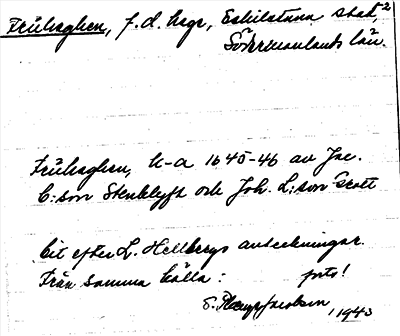 Frühaghen, f.d. hage, Eskilstuna stad, 2
Södermanlands län.
Frühaghen, k-a 1645-46 av Jac.
C:son Stenklyft och Joh. L:son Grott
Cit efter L. Hellbergs anteckningar.
Från samma källa: forts!
1943